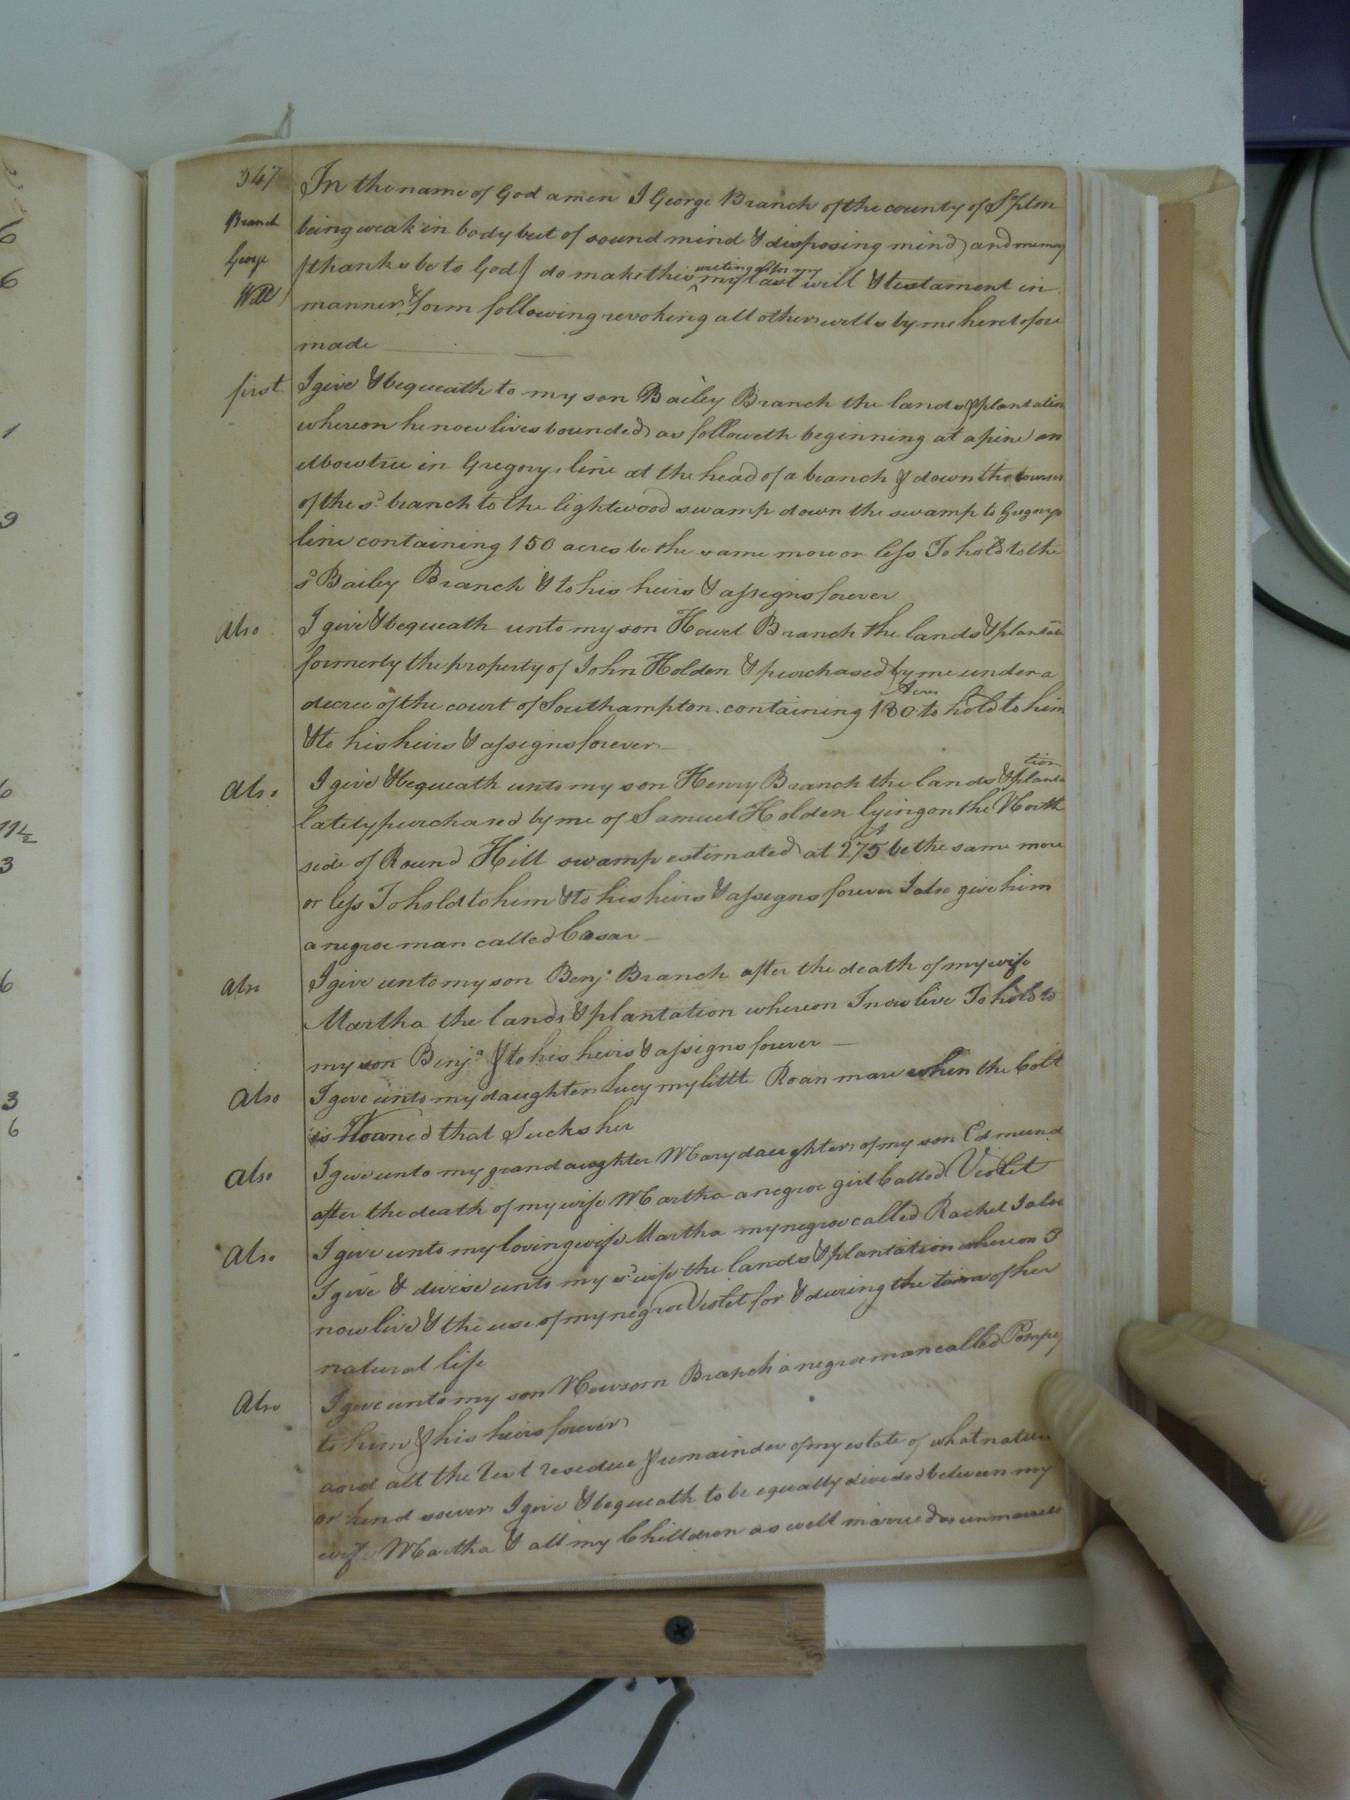 347
In the name of God amen I George Branch of the county of S°pton
Branch
being weak in body but of sound mind & disposing mind and memory
George
(thanks be to God) do make this writing for my
my last will & testament in
Will
manner & form following revoking all other wills by me heretofore
made
first
I give & bequeath to my son Bailey Branch the lands & plantation
whereon he now lives bounded as followeth beginning at a pine an
elbow tree in Gregorys line at the head of a branch & down the courses
of the sd branch to the lightwood swamp down the swamp to Gregorys
line containing 150 acres be the same more or less To hold to the
sd Bailey Branch & to his heirs & assigns forever
also
I give & bequeath unto my son Howel Branch the lands & plantatn
formerly the property of John Holden & purchased by me under a
decree of the court of Southampton containing 180 Acres to hold to him
& to his heirs & assigns forever
Also
I give & bequeath unto my son Henry Branch the lands & planta
tion
lately purchased by me of Samuel Holden lying on the North
side of Round Hill swamp estimated at 275 A be the same more
or less To hold to him & to his heirs & assigns forever I also give him
a negroe man called Cesar
also
I give unto my son Benja Branch after the death of my wife
Martha the lands & plantation whereon I now live To hold to
my son Benja & to his heirs & assigns forever
Also
I give unto my daughter Lucy my little Roan mare when the Colt
is Weaned that Sucks her
also
I give unto my grandaughter Mary daughter of my son Edmund
after the death of my wife Martha a negroe girl Called Violet
Also
I give unto my loving wife Martha my negroe called Rachel I also
I give & devise unto my sd wife the lands & plantation whereon I
now live & the use of my negroe Violet for & during the term of her
natural life
Also
I give unto my son Newsom Branch a negroe man called Pompey
to him & his heirs forever
and all the rest residue & remainder of my estate of what nature
or kind soever I give & bequeath to be equally divided between my
wife Martha & all my Children as well married as unmarried
6
6
1
9
6
11½
3
6
3
6